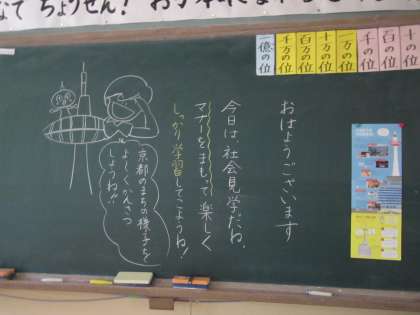 なて ちょうせん！
一億の位
千万の位
百万の位
十万の位
一万の位
千の位
百の位
十の位
おはようございます
今日は、社会見学だね。
マナーをまもって楽しく
しっかり学習してこようね！
京都のまちの様子を
よーくかんさつ
しようね!!